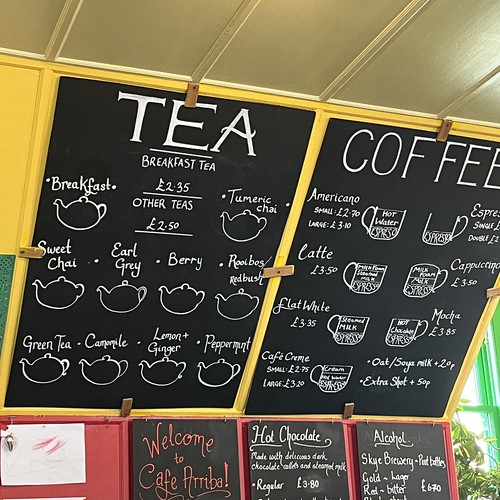 TEA
BREAKFAST TEA
£2.35
OTHER TEAS
£2.50
• Breakfast •
Tumeric chai •
Sweet Chai •
Earl Grey •
Berry •
Rooibos/
Redbush
Green Tea •
Camomile •
Lemon + Ginger •
Peppermint
COFFEE
Americano
SMALL: £2.70
LARGE: £3.10
HOT WATER
ESPRESSO
ESPRESSO
Latte
£3.50
STEAMED MILK
ESPRESSO
MILK FOAM
MILK
ESPRESSO
Cappuccino
£3.50
Flat White
£3.35
STEAMED MILK
ESPRESSO
HOT CHOCOLATE
ESPRESSO
Mocha
£3.85
Café Creme
SMALL: £2.75
LARGE: £3.20
Cream
HOT WATER
ESPRESSO
• Oat/Soya milk + 20p
• Extra Shot + 50p
Welcome
to
Cafe Arriba!
Hot Chocolate
Made with delicious dark
chocolate
and steamed milk
• Regular £3.80
Alcohol
Skye Brewery
bottles
Gold ~ Lager
Red ~ bitter